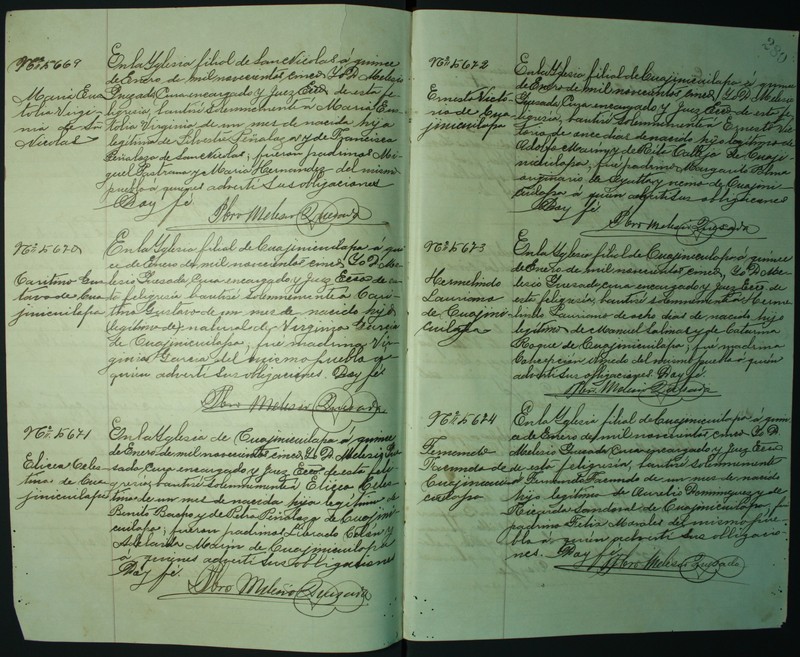 Nº 5669
María Eu
lolia Virgi-
nia de Sn
Nicolas
En la Yglesia filial de San Nicolas á quince
de Enero de mil novecientos cinco, Yo D. Melesio
Quezada Cura encargado y Juez Ecco de esta fe-
ligresía, bauticé solemnemente á María Eu-
lolia Virginia de un mes de nacida hija
legítima de Silvestre Peñaloza y de Francisca
Peñaloza de San Nicolas; fueron padrinos Mi-
guel Pastrana y María Hernandez del mismo
pueblo á quienes advertí sus obligaciones
Doy fé.
Pbro Melesio Quezada
Nº 5670
Caritino Gus
tavo de Cua
jinicuilapa
En la Yglesia filial de Cuajinicuilapa á quin
ce de Enero de mil novecientos cinco, Yo D. Me-
lesio Quezada, Cura encargado y Juez Ecco de es-
ta feligresía bauticé solemnemente á Cari-
tino Gustavo de un mes de nacido hijo
(legítimo de) natural de Virginia García
de Cuajinicuilapa; fué madrina Vir-
ginia García del mismo pueblo á
quien advertí sus obligaciones. Doy fé
Pbro Melesio Quezada
Nº 5671
Elicea Celes-
tina de Cua
jinicuilapa
En la Yglesia de Cuajinicuilapa á quince
de Enero de mil novecientos cinco, Yo D. Melesio Que
zada, Cura encargado y Juez Ecco de esta feli-
gresía, bauticé solemnemente á Elicea Celes-
tina de un mes de nacida hija legítima de
Benito Bacho y de Petra Peñaloza de Cuajini-
cuilapa; fueron padrinos Liberado Colón y
Adelaida Marin de Cuajinicuilapa
á quienes advertí sus obligaciones
Doy fé.
Pbro Melesio Quezada
280
Nº 5672
Ernesto Victo
ria de Cua
jinicuilapa
En la Yglesia filial de Cuajinicuilapa á quince
de Enero de mil novecientos cinco, Yo D. Melesio
Quezada Cura encargado y Juez Ecco de esta fe-
ligresía, bauticé solemnemente á Ernesto Vic
toria de once dias de nacido hijo legítimo de
Adolfo Marin y de Rita Calleja de Cuaji-
nicuilapa, fué padrino Margarito Peña
originario de Ayutla y vecino de Cuajini-
cuilapa á quien advertí sus obligaciones
Doy fé
Pbro Melesio Quezada
Nº 5673
Hermelindo
Lauriano
de Cuajini
cuilapa
En la Yglesia filial de Cuajinicuilapa á quince
de Enero de mil novecientos cinco, Yo D. Me-
lesio Quezada, Cura encargado y Juez Ecco de
esta feligresía, bauticé solemnemente á Herme
lindo Lauriano de ocho dias de nacido hijo
legítimo de Manuel Salinas y de Catarina
Roque de Cuajinicuilapa; fué madrina
Concepción del mismo pueblo á quién
advertí sus obligaciones. Doy fé
Pbro Melesio Quezada
Nº 5674
Fernando
Facundo de
Cuajinicui
cuilapa
En la Yglesia filial de Cuajinicuilapa á quin
ce de Enero de mil novecientos cinco, Yo D.
Melesio Quezada, Cura encargado y Juez Ecco
de esta feligresía, bauticé solemnemente
á Fernando Facundo de un mes de nacido
hijo legítimo de Aurelio Dominguez y de
Sandoval de Cuajinicuilapa, fué
padrino Felix Morales del mismo pue-
blo á quien advertí sus obligacio-
nes. Doy fé.
Pbro Melesio Quezada